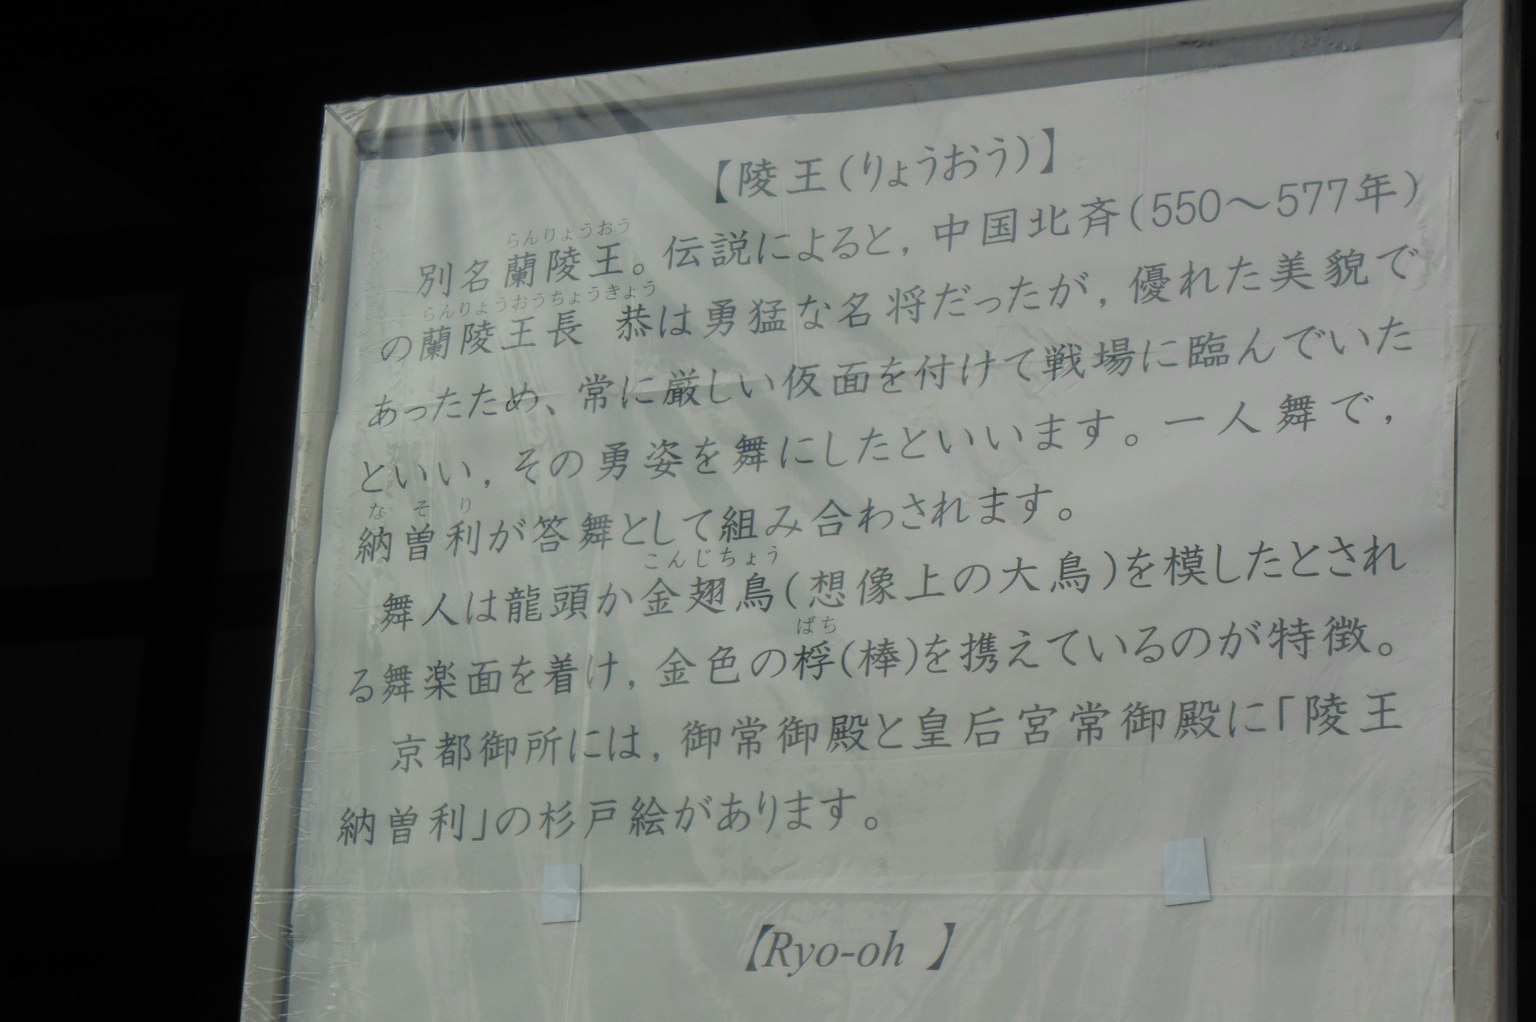 【陵王(りょうおう)】
別名蘭陵王。伝説によると,中国北斉(550～577年)
らんりょうおう
の蘭陵王長 恭は勇猛な名将だったが,優れた美貌で
らんりょうおうちょうきょう
あったため、常に厳しい仮面を付けて戦場に臨んでいた
といい,その勇姿を舞にしたといいます。一人舞で,
納曽利が答舞として組み合わされます。
なそり
舞人は龍頭か金翅鳥(想像上の大鳥)を模したとされ
こんじちょう
る舞楽面を着け,金色の桴(棒)を携えているのが特徴。
ばち
京都御所には,御常御殿と皇后宮常御殿に「陵王
納曽利」の杉戸絵があります。
【Ryo-oh 】